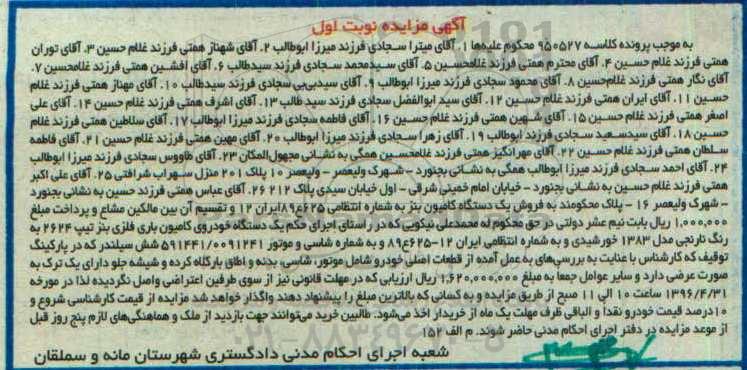 آگهی مزایده نوبت اول
به موجب پرونده کلاسه ۹۵۰۵۲۷ محکوم علیه‌ها ۱. آقای میترا سجادی فرزند میرزا ابوطالب ۲. آقای شهناز همتی فرزند غلام حسین ۳. آقای توران
همتی فرزند غلام حسین ۴. آقای محترم همتی فرزند غلامحسین ۵. آقای سیدمحمد سجادی فرزند سیدطالب ۶. آقای افشین همتی فرزند غلامحسین ۷.
آقای نگار همتی فرزند غلام‌حسین ۸. آقای محمود سجادی فرزند میرزا ابوطالب ۹. آقای سیدبی‌بی سجادی فرزند سیدطالب ۱۰. آقای مهناز همتی فرزند غلام
حسین ۱۱. آقای ایران همتی فرزند غلام حسین ۱۲. آقای سید ابوالفضل سجادی فرزند سید طالب ۱۳. آقای اشرف همتی فرزند غلام حسین ۱۴. آقای علی
اصغر همتی فرزند غلام حسین ۱۵. آقای شهین همتی فرزند غلام حسین ۱۶. آقای فاطمه سجادی فرزند میرزا ابوطالب ۱۷. آقای سلاطین همتی فرزند غلام
حسین ۱۸. آقای سیدسعید سجادی فرزند ابوطالب ۱۹. آقای زهرا سجادی فرزند میرزا ابوطالب ۲۰. آقای مهین همتی فرزند غلام حسین ۲۱. آقای فاطمه
سلطان همتی فرزند غلام حسین ۲۲. آقای مهرانگیز همتی فرزند غلامحسین همگی به نشانی مجهول‌المکان ۲۳. آقای طاووس سجادی فرزند میرزا ابوطالب
۲۴. آقای احمد سجادی فرزند میرزا ابوطالب همگی به نشانی بجنورد - شهرک ولیعصر - ولیعصر ۱۰ پلاک ۲۰۱ منزل سهراب شرافتی ۲۵. آقای علی اکبر
همتی فرزند غلام حسین به نشانی بجنورد - خیابان امام خمینی شرقی - اول خیابان سیدی پلاک ۲۱۲ ۲۶. آقای عباس همتی فرزند حسین به نشانی بجنورد
- شهرک ولیعصر ۱۶ - پلاک محکومند به فروش یک دستگاه کامیون بنز به شماره انتظامی ۸۹ع۶۲۵/ایران ۱۲ و تقسیم آن بین مالکین مشاع و پرداخت مبلغ
۱,۰۰۰,۰۰۰ ریال بابت نیم عشر دولتی در حق محکوم له محمدعلی نیکویی که در راستای اجرای حکم یک دستگاه خودروی کامیون باری فلزی بنز تیپ ۲۶۲۴ به
رنگ نارنجی مدل ۱۳۸۳ خورشیدی و به شماره انتظامی ایران ۱۲-۸۹ع۶۲۵ و به شماره شاسی و موتور ۵۹۱۴۴۱/۰۰۹۱۲۴۱ شش سیلندر که در پارکینگ
توقیف که کارشناس با عنایت به بررسی‌های به عمل آمده از قطعات اصلی خودرو شامل موتور، شاسی، بدنه و اطاق بارگلاه کرده و شیشه جلو دارای یک ترک به
صورت عرضی دارد و سایر عوامل جمعا به مبلغ ۱,۶۲۰,۰۰۰,۰۰۰ ریال ارزیابی که در مهلت قانونی نیز از سوی طرفین اعتراضی واصل نگردیده لذا در مورخه
۱۳۹۶/۴/۳۱ ساعت ۱۰ الی ۱۱ صبح از طریق مزایده و به کسانی که بالاترین مبلغ را پیشنهاد دهند واگذار خواهد شد مزایده از قیمت کارشناسی شروع و
۱۰درصد قیمت خودرو نقدا و الباقی ظرف مهلت یک ماه از خریدار اخذ می‌شود. طالبین خرید می‌توانند جهت بازدید از ملک و هماهنگی‌های لازم پنج روز قبل
از موعد مزایده در دفتر اجرای احکام مدنی حاضر شوند. م الف ۱۵۲
شعبه اجرای احکام مدنی دادگستری شهرستان مانه و سملقان